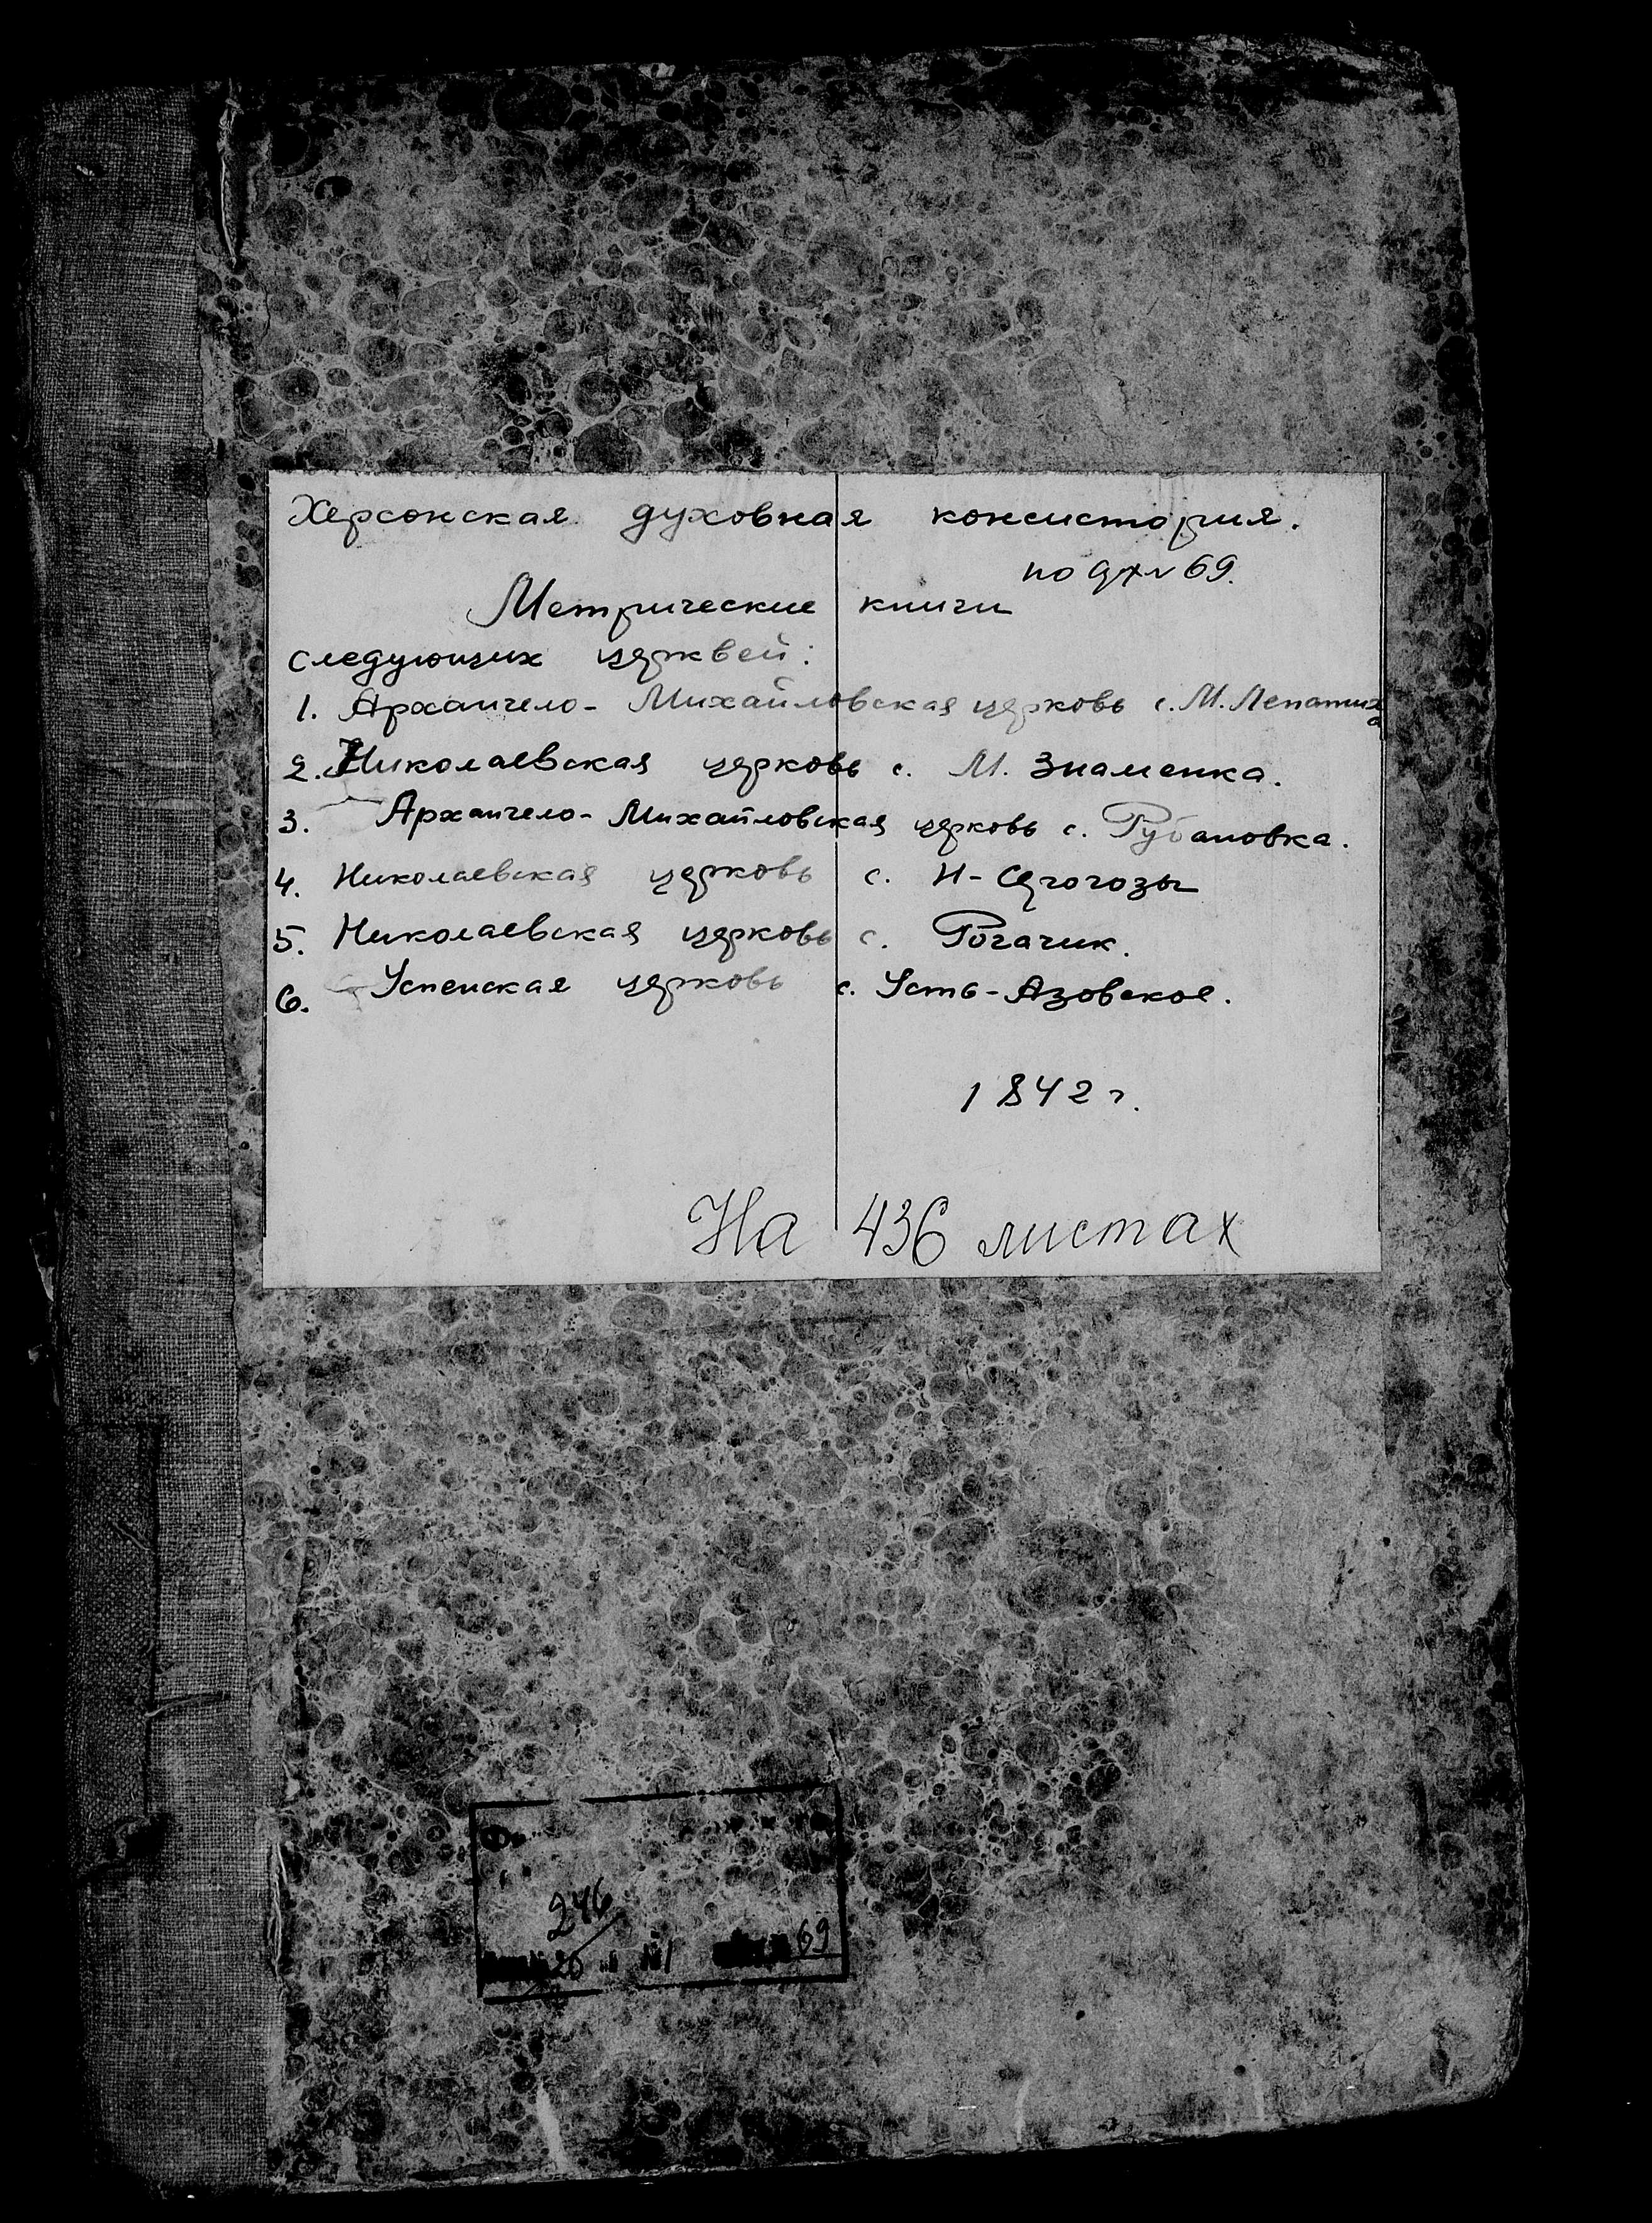 Херсонская духовная консистория.
69.
Метрические книги
следующих церквей:
1. Архангело-Михайловская церковь с. М. Лепатиха
2. Николаевская церковь с. М. Знаменка.
3. Архангело-Михайловская церковь с. Рубановка.
4. Николаевская церковь с. Н-Серогозы
5. Николаевская церковь с. Рогачик.
6. Успенская церковь с. Усть-Азовское.
1842 г.
На 436 листах
246
69